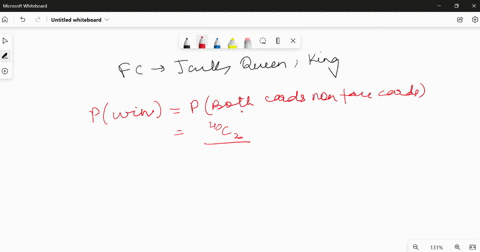 Microsoft Whiteboard
Untitled whiteboard
FC → Jacks, Queen, King
P(win) = P(Both cards non face cards)
= ⁴⁰C₂
131%